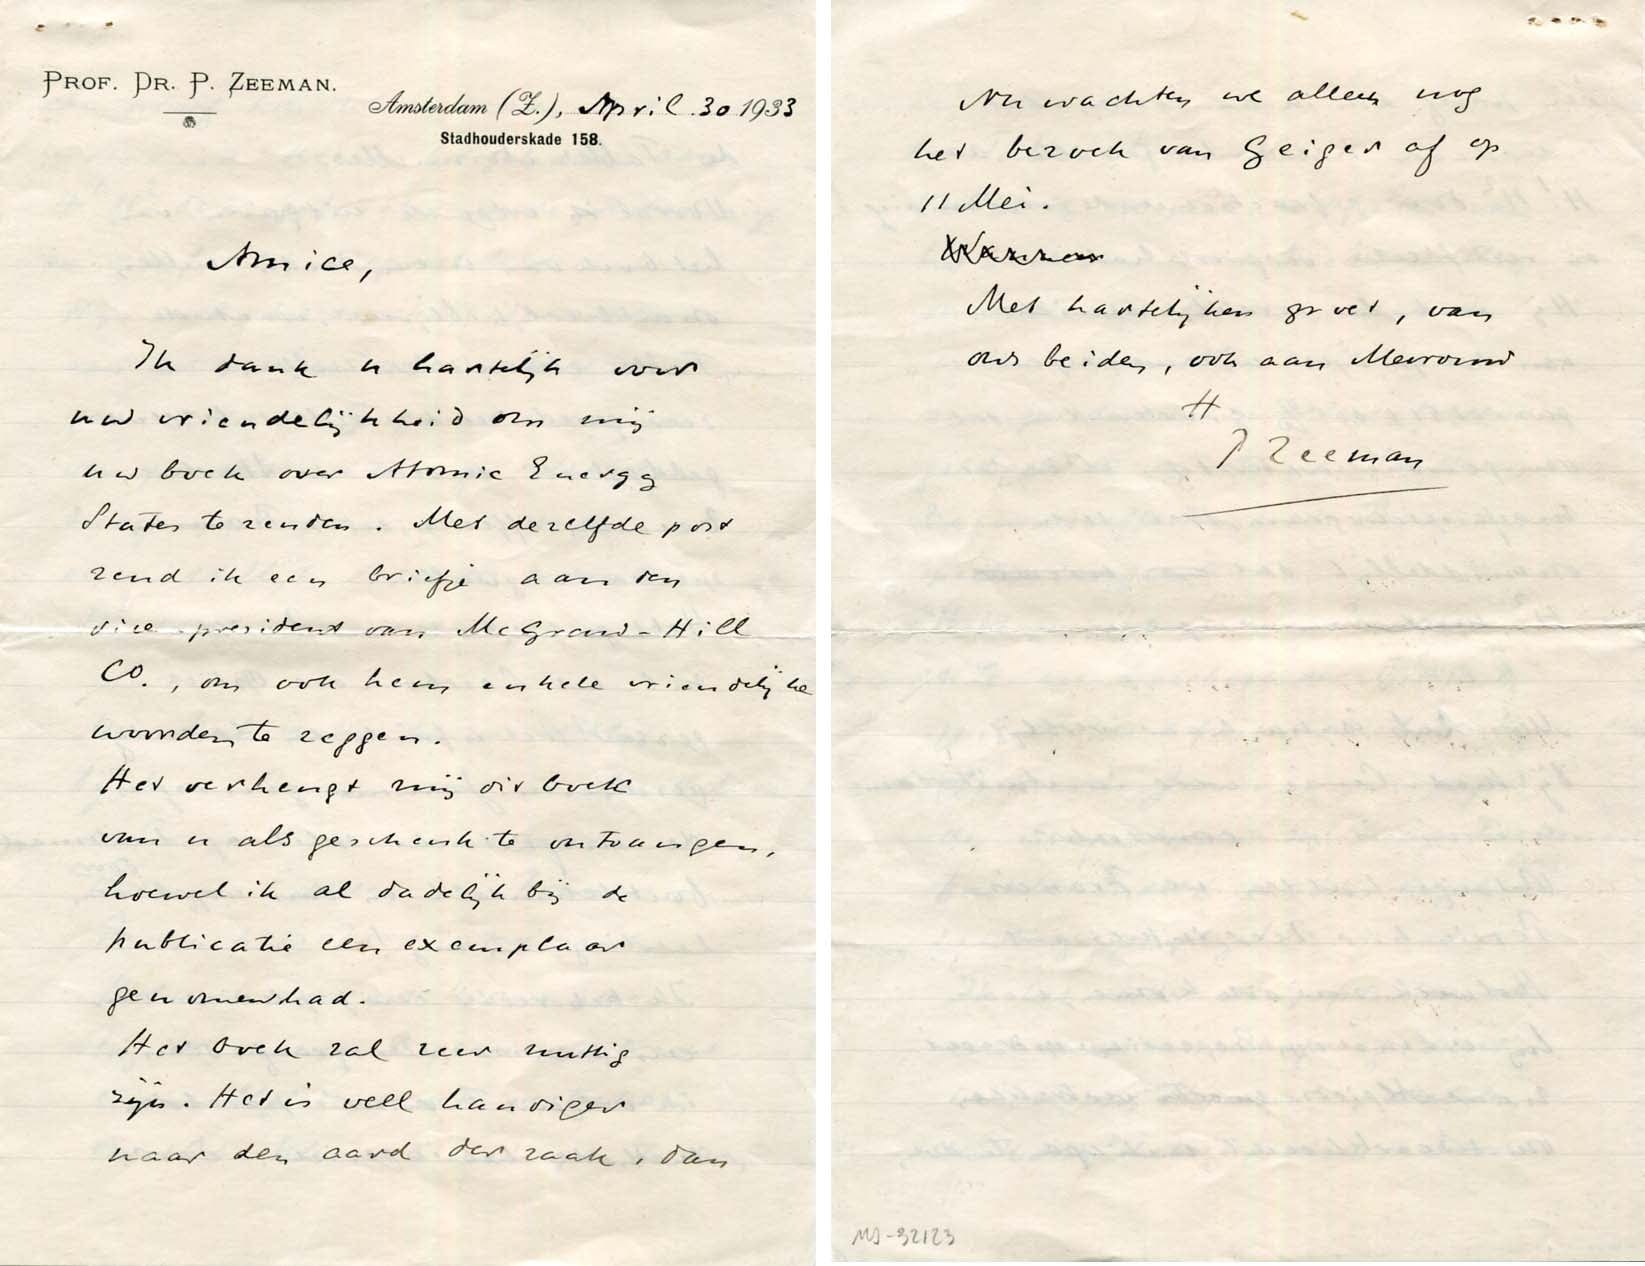 PROF. DR. P. ZEEMAN.
Amsterdam (Z.), April 30 1933
Stadhouderskade 158.
Amice,
Ik dank u hartelijk voor
uw vriendelijkheid om mij
uw boek over Atomic Energy
States te zenden. Met dezelfde post
zend ik een briefje aan den
vice-president van McGraw-Hill
CO., om ook hem enkele vriendelijke
woorden te zeggen.
Het verheugt mij dit boek
van u als geschenk te ontvangen,
hoewel ik al dadelijk bij de
publicatie een exemplaar
genomen had.
Het boek zal zeer nuttig
zijn. Het is veel handiger
naar den aard der zaak, dan
Nu wachten we alleen nog
het bezoek van Geiger af op
11 Mei.
Met hartelijken groet, van
ons beiden, ook aan Mevrouw
tt
P Zeeman
MS-32123